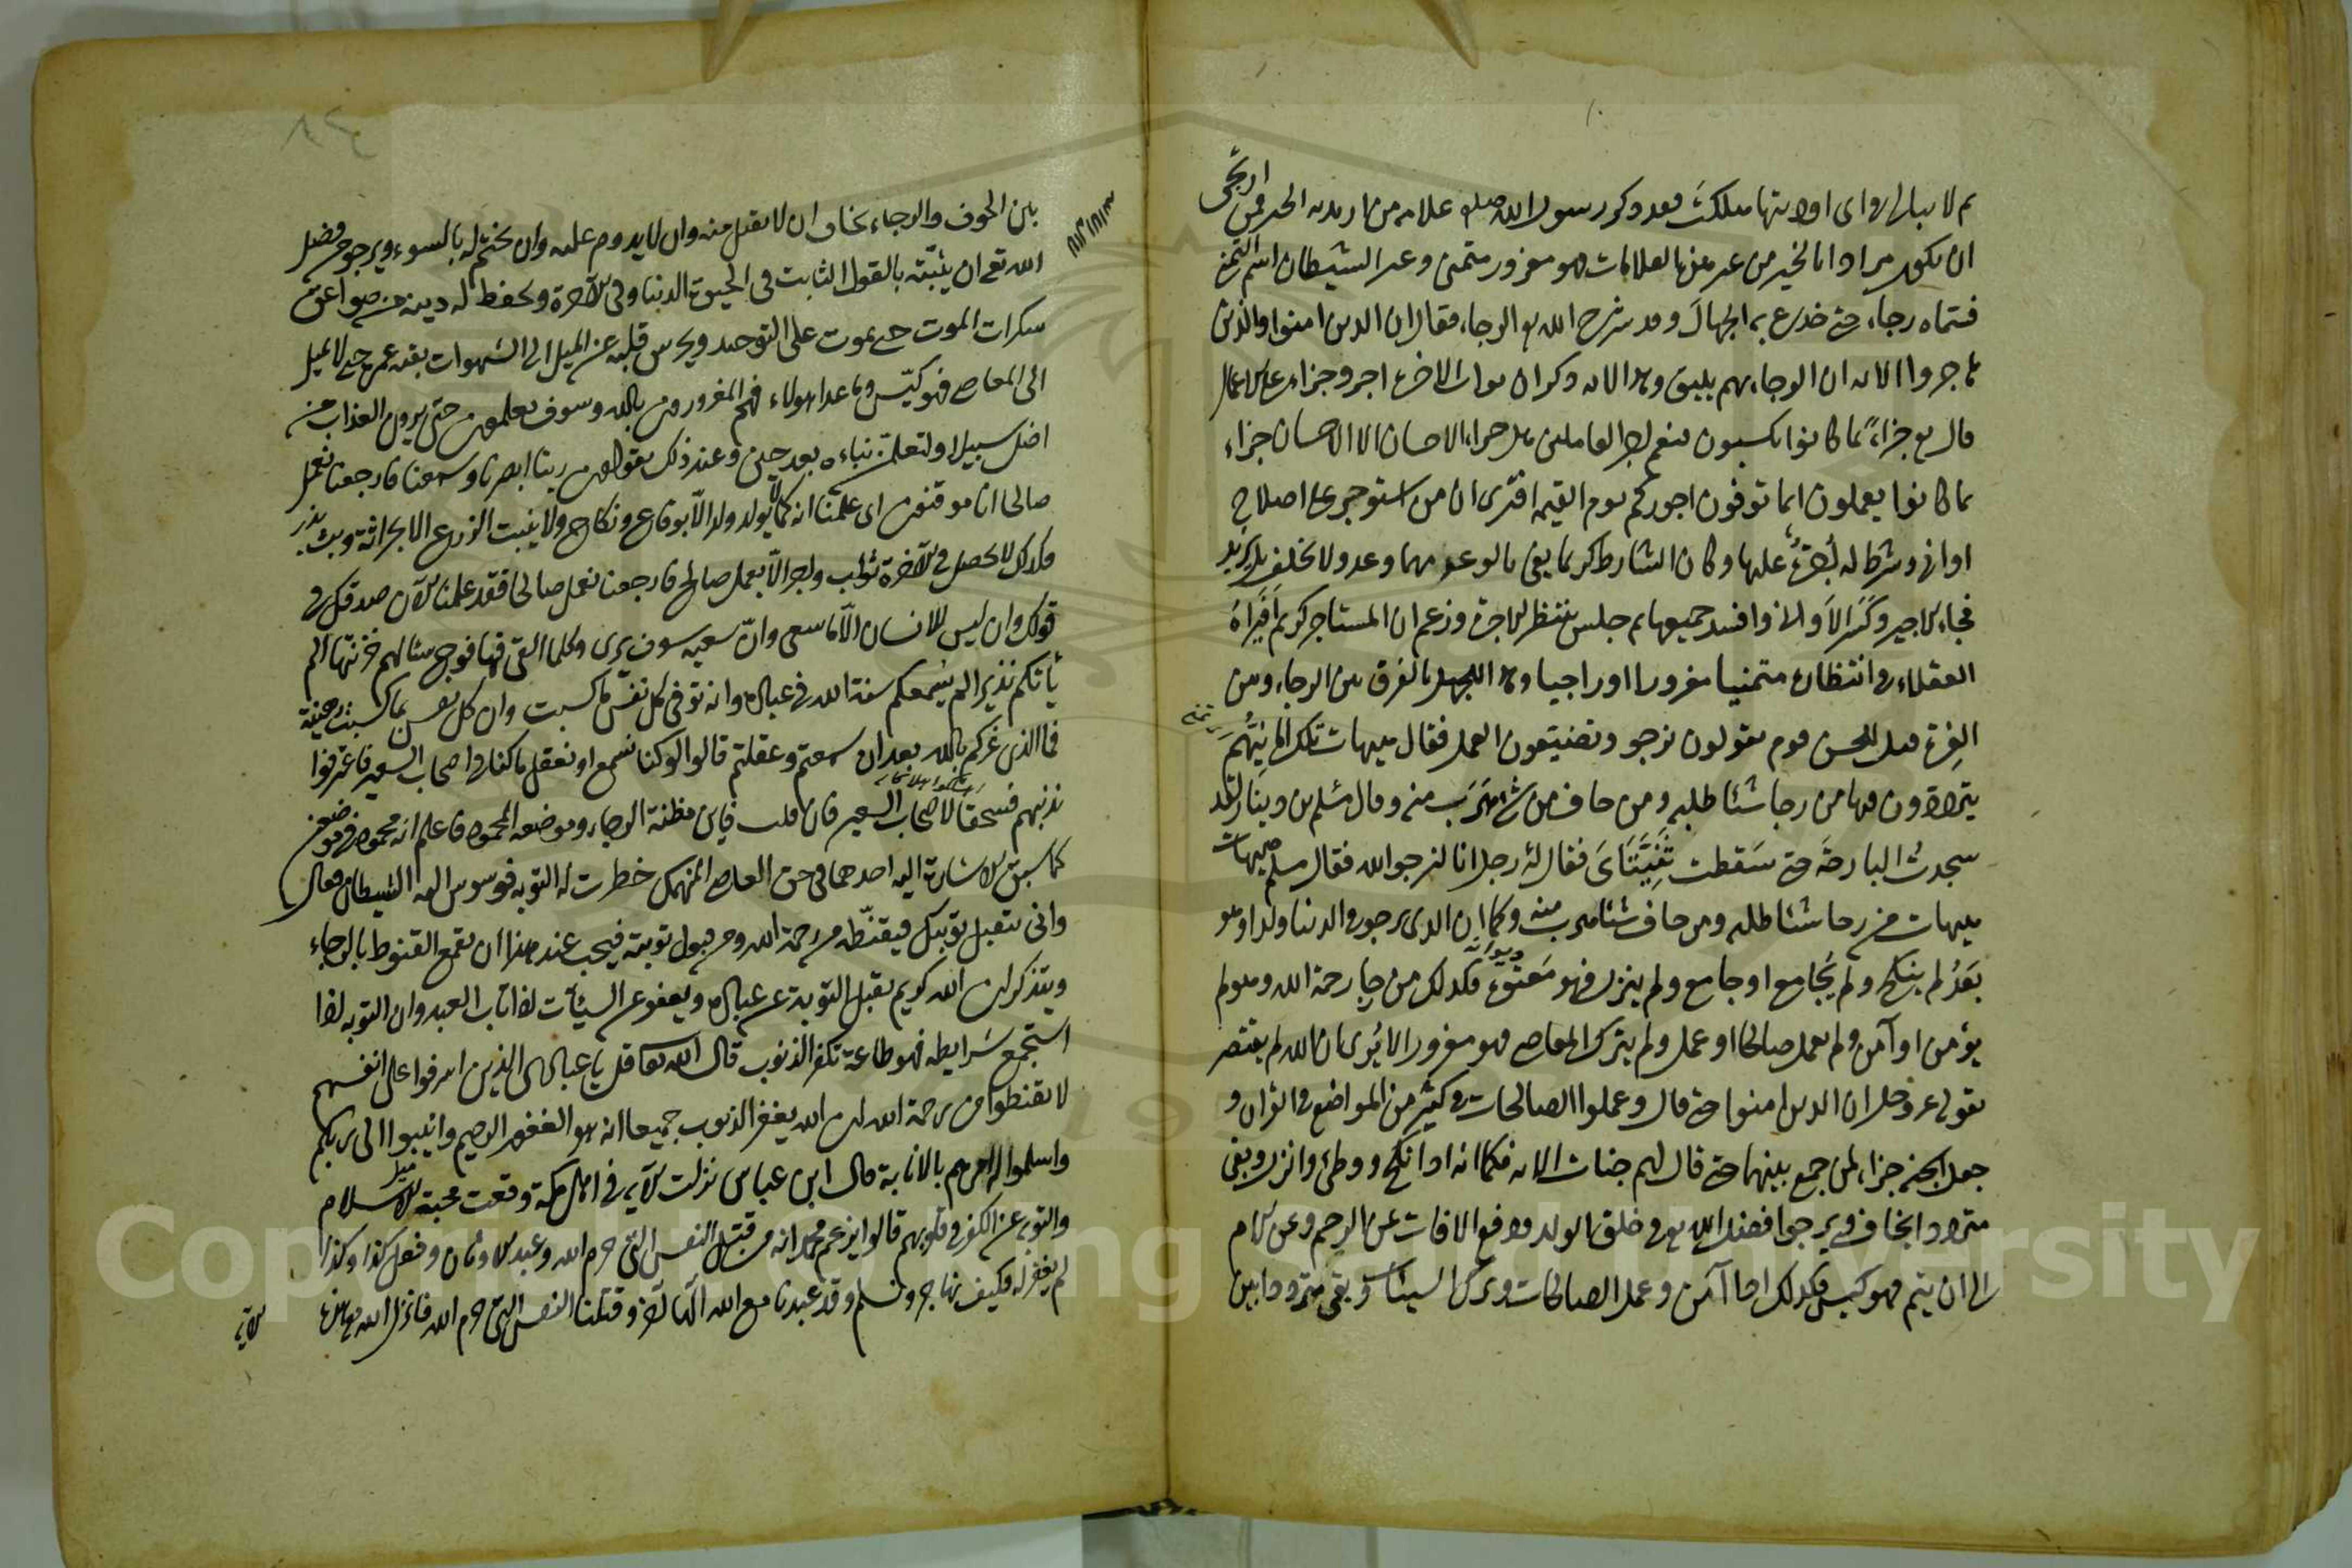 ثم لا يبالى فى اى اوديتها هلكت فقد ذكر رسول الله صلعم علامة من اريد به الخير فمن ارتجى
ان يكون مرادا بالخير من غير هذه العلامات فهو مغرور متمنى وغير الشيطان اسم التمنى
فسماه رجاء حتى خدع به الجهال وقد شرح الله تع الرجاء فقال ان الذين امنوا والذين
هاجروا الاية ان الرجاء بهم يليق وهذا لانه ذكر ان ثواب الاخرة اجر وجزاء على الاعمال
قال تع جزاء بما كانوا يكسبون فنعم اجر العاملين هل جزاء الاحسان الا الاحسان جزاء
بما كانوا يعملون انما توفون اجوركم يوم القيمة افترى ان من استوجر على اصلاح
اوانى وشرط له اجرة عليها وكان الشارط كريما يفى بالوعد مهما وعد ولا يخلف بل يزيد
فجاء الاجير وكسر الاوانى وافسد جميعها ثم جلس ينتظر الاجرة وزعم ان المستاجر كريم افيراه
العقلاء فى انتظاره متمنيا مغرورا او راجيا وهذا للجهل بالفرق بين الرجاء وبين
الغرة قيل للحسن قوم يقولون نرجو ويضيعون العمل فقال هيهات تلك امانيهم
يترددون فيها من رجا شيئا طلبه ومن خاف من شئ هرب منه وقال مسلم بن دينار لقد
سجدت البارحة حتى سقطت ثنيتاى فقال له رجل انا لنرجو الله فقال مسلم هيهات
هيهات من رجا شيئا طلبه ومن خاف شيئا هرب منه وكما ان الذى يرجو فى الدنيا ولدا وهو
بعد لم ينكح ولم يجامع او جامع ولم ينزل فهو معتوه فكذلك من رجا رحمة الله وهو لم
يؤمن او آمن ولم يعمل صالحا او عمل ولم يترك المعاصى فهو مغرور الا يرى ان الله لم يقتصر
بقوله عز وجل ان الذين امنوا حتى قال وعملوا الصالحات فى كثير من المواضع فى القران و
جعل الجنة جزاء لمن جمع بينهما حتى قال لهم جنات الاية فكما انه اذا نكح ووطئ وانزل وبقى
مترددا يخاف ويرجو فضل الله تع فى خلق الولد ودفع الافات عن الرحم وعن الام
الى ان يتم فهو كيس فكذلك اذا آمن وعمل الصالحات وترك السيئات وبقى مترددا بين
بين الخوف والرجاء يخاف ان لا يقبل منه وان لا يدوم عليه وان يختم له بالسوء ويرجو من فضل
الله تع ان يثبته بالقول الثابت فى الحيوة الدنيا وفى الآخرة ويحفظ له دينه من صواعق
سكرات الموت حتى يموت على التوحيد ويحرس قلبه عن الميل الى الشهوات بقية عمره حتى لا يميل
الى المعاصى فهو كيّس وما عدا هولاء فهم المغرورون بالله وسوف يعلمون حتى يرون العذاب من
اضل سبيلا ولتعلمن نباءه بعد حين وعند ذلك يقولون ربنا ابصرنا وسمعنا فارجعنا نعمل
صالحا انا موقنون اى علمنا انه كما لا يولد ولد الا بوقاع ونكاح ولا ينبت الزرع الا بحراثة وبث بذر
فكذلك لا يحصل فى الآخرة ثواب واجر الا بعمل صالح فارجعنا نعمل صالحا فقد علمنا الآن صدقك فى
قولك وان ليس للانسان الا ما سعى وان سعيه سوف يرى وكلما القى فيها فوج سئالهم خزنتها الم
يأتكم نذير الم يسمعكم سنة الله فى عباده وانه توفى كل نفس ما كسبت وان كل نفس بما كسبت رهينة
فما الذى غركم بالله بعد ان سمعتم وعقلتم قالوا لو كنا نسمع او نعقل ما كنا فى اصحاب السعير فاعترفوا
بذنبهم فسحقا لاصحاب السعير فان قلت فاين مظنة الرجاء وموضعه المحمود فاعلم انه محمود فى موضعين
كما سبق الاشارة اليه احدهما فى حق العاصى المنهمك خطرت له التوبه فوسوس اليه الشيطان وقال
وانى تتقبل توبتك فيقنّطه من رحمة الله ومن قبول توبته فيجب عند هذا ان يقمع القنوط بالرجاء
ويتذكر ان الله كريم يقبل التوبة عن عباده ويعفو عن السيئات اذا تاب العبد وان التوبه اذا
استجمع شرايطه فهو طاعة تكفر الذنوب قال الله تعا قل يا عبادى الذين اسرفوا على انفسهم
لا تقنطوا من رحمة الله ان الله يغفر الذنوب جميعا انه هو الغفور الرحيم وانيبوا الى ربكم
واسلموا له امرهم بالانابة قال ابن عباس نزلت الآية فى اهل مكة وقعت محبة الاسلام
والتوبه عن الكفر فى قلوبهم قالوا يزعم محمد انه من قتل النفس التى حرم الله وعبد الاوثان وفعل كذا وكذا
لم يغفر له فكيف نهاجر ونسلم وقد عبدنا مع الله الها آخر وقتلنا النفس التى حرم الله فانزل الله تع هذه
الآية